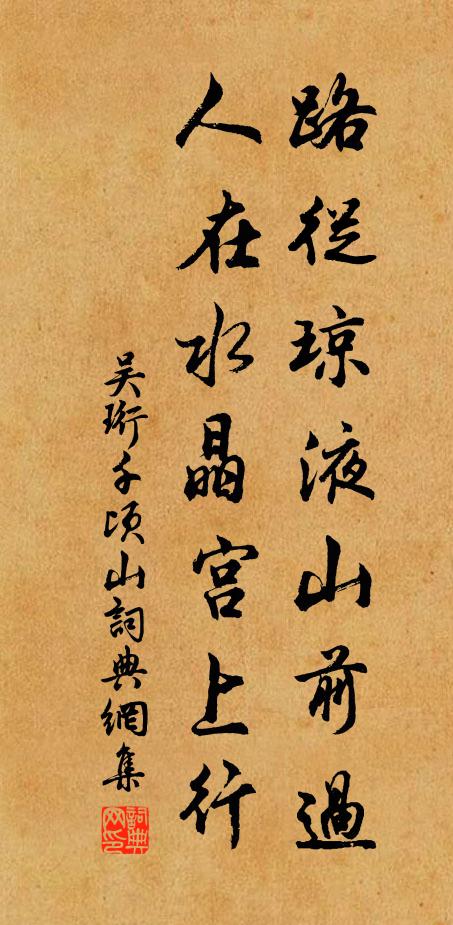 路從琼液山前過
人在水晶宮上行
吴珩千頃山詞典網集
詞典网印